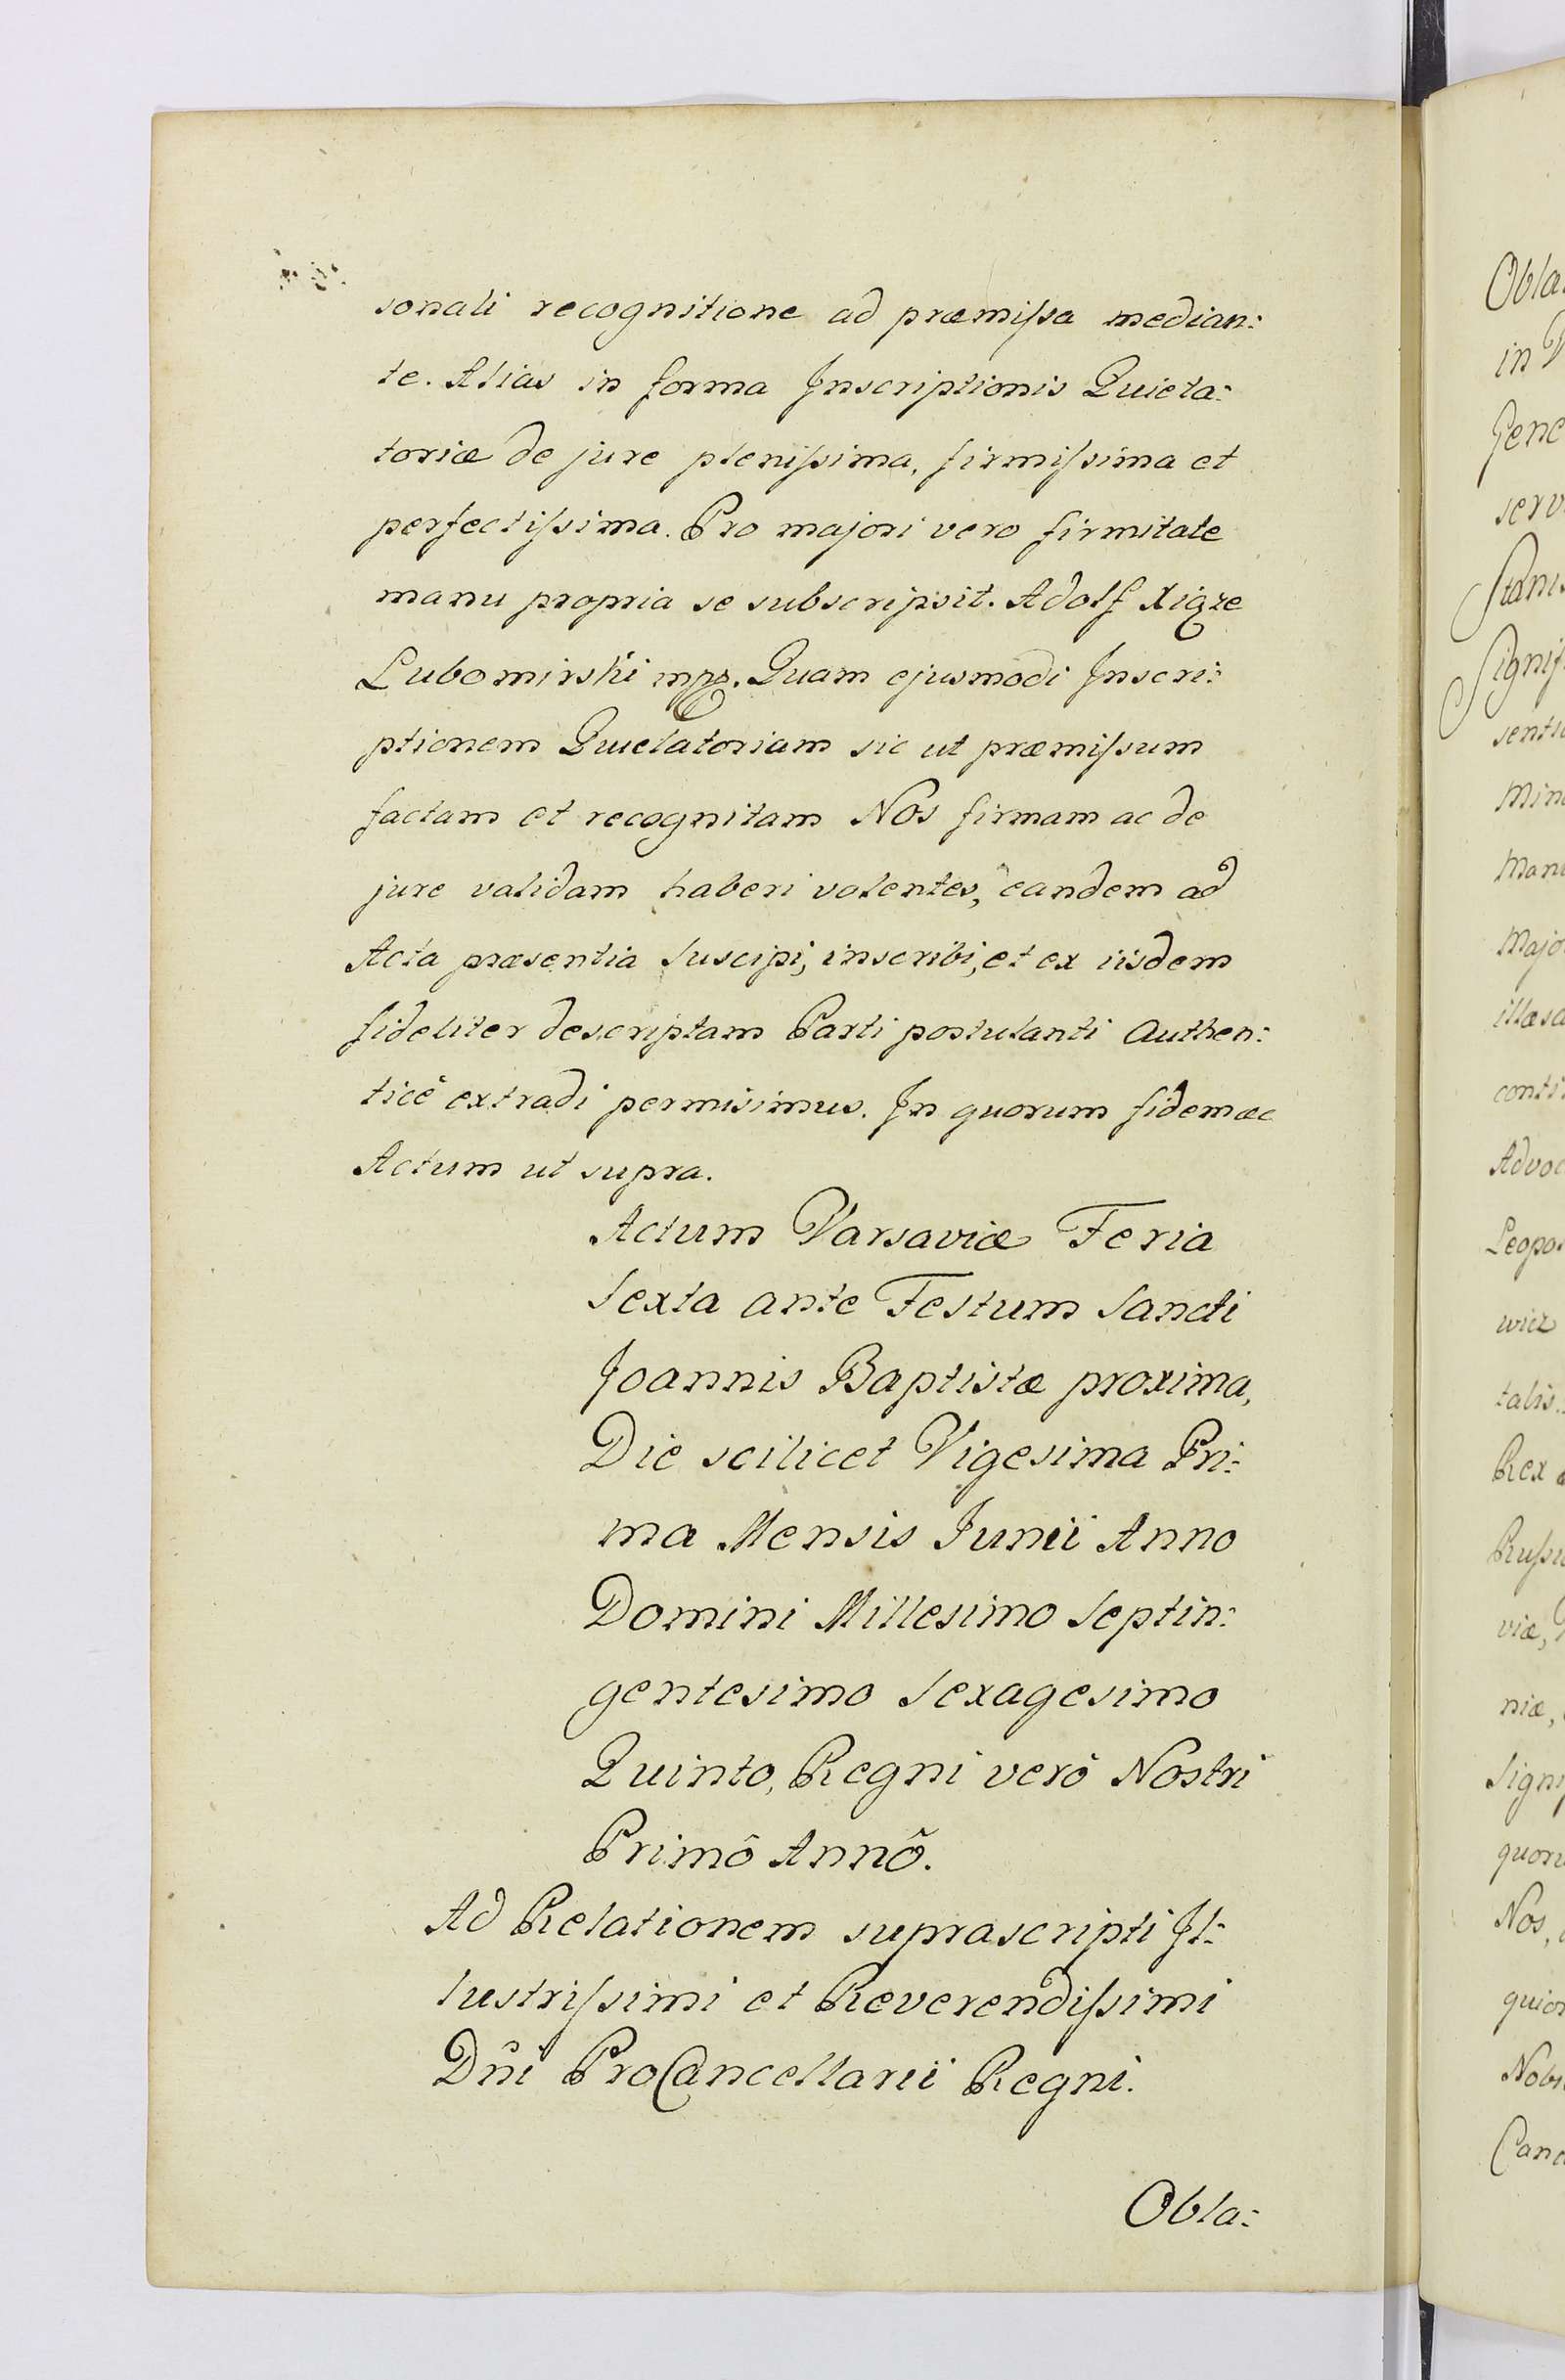 sonali recognitione ad præmiſsa median:
te. Alias in forma Inscriptionis Quieta:
toriæ de jure pleniſsima, firmiſsima et
perfectiſsima. Pro majori vero firmitate
manu propria se subscripsit. Adolf Xiąze
Lubomirski mpp. Quam ejusmodi Inscri:
ptionem Quietatoriam sic ut præmiſsum
factam et recognitam Nos firmam ac de
jure validam haberi volentes, eandem ad
Acta præsentia suscipi, inscribi, et ex iisdem
fideliter descriptam Parti postulanti Authen:
ticè extradi permisimus. In quorum fidem ac
Actum ut supra.
Actum Varsaviæ Feria
Sexta ante Festum Sancti
Joannis Baptistæ proxima,
Die scilicet Vigesima Pri:
ma Mensis Junii Anno
Domini Millesimo Septin:
gentesimo Sexagesimo
Quinto, Regni verò Nostri
Primô Annô.
Ad Relationem suprascripti Il:
lustriſsimi et Reverendiſsimi
Dñi ProCancellarii Regni.
Obla:
Obla:
in
Gene
serv
Stanis
Signif
sentiu
Min
Man
Majo
illæsa
conti
Advoc
Leopo
wicz
talis.
Rex
Ruſsi
viæ,
niæ,
Signi
quoru
Nos,
quior
Nobi
Canc